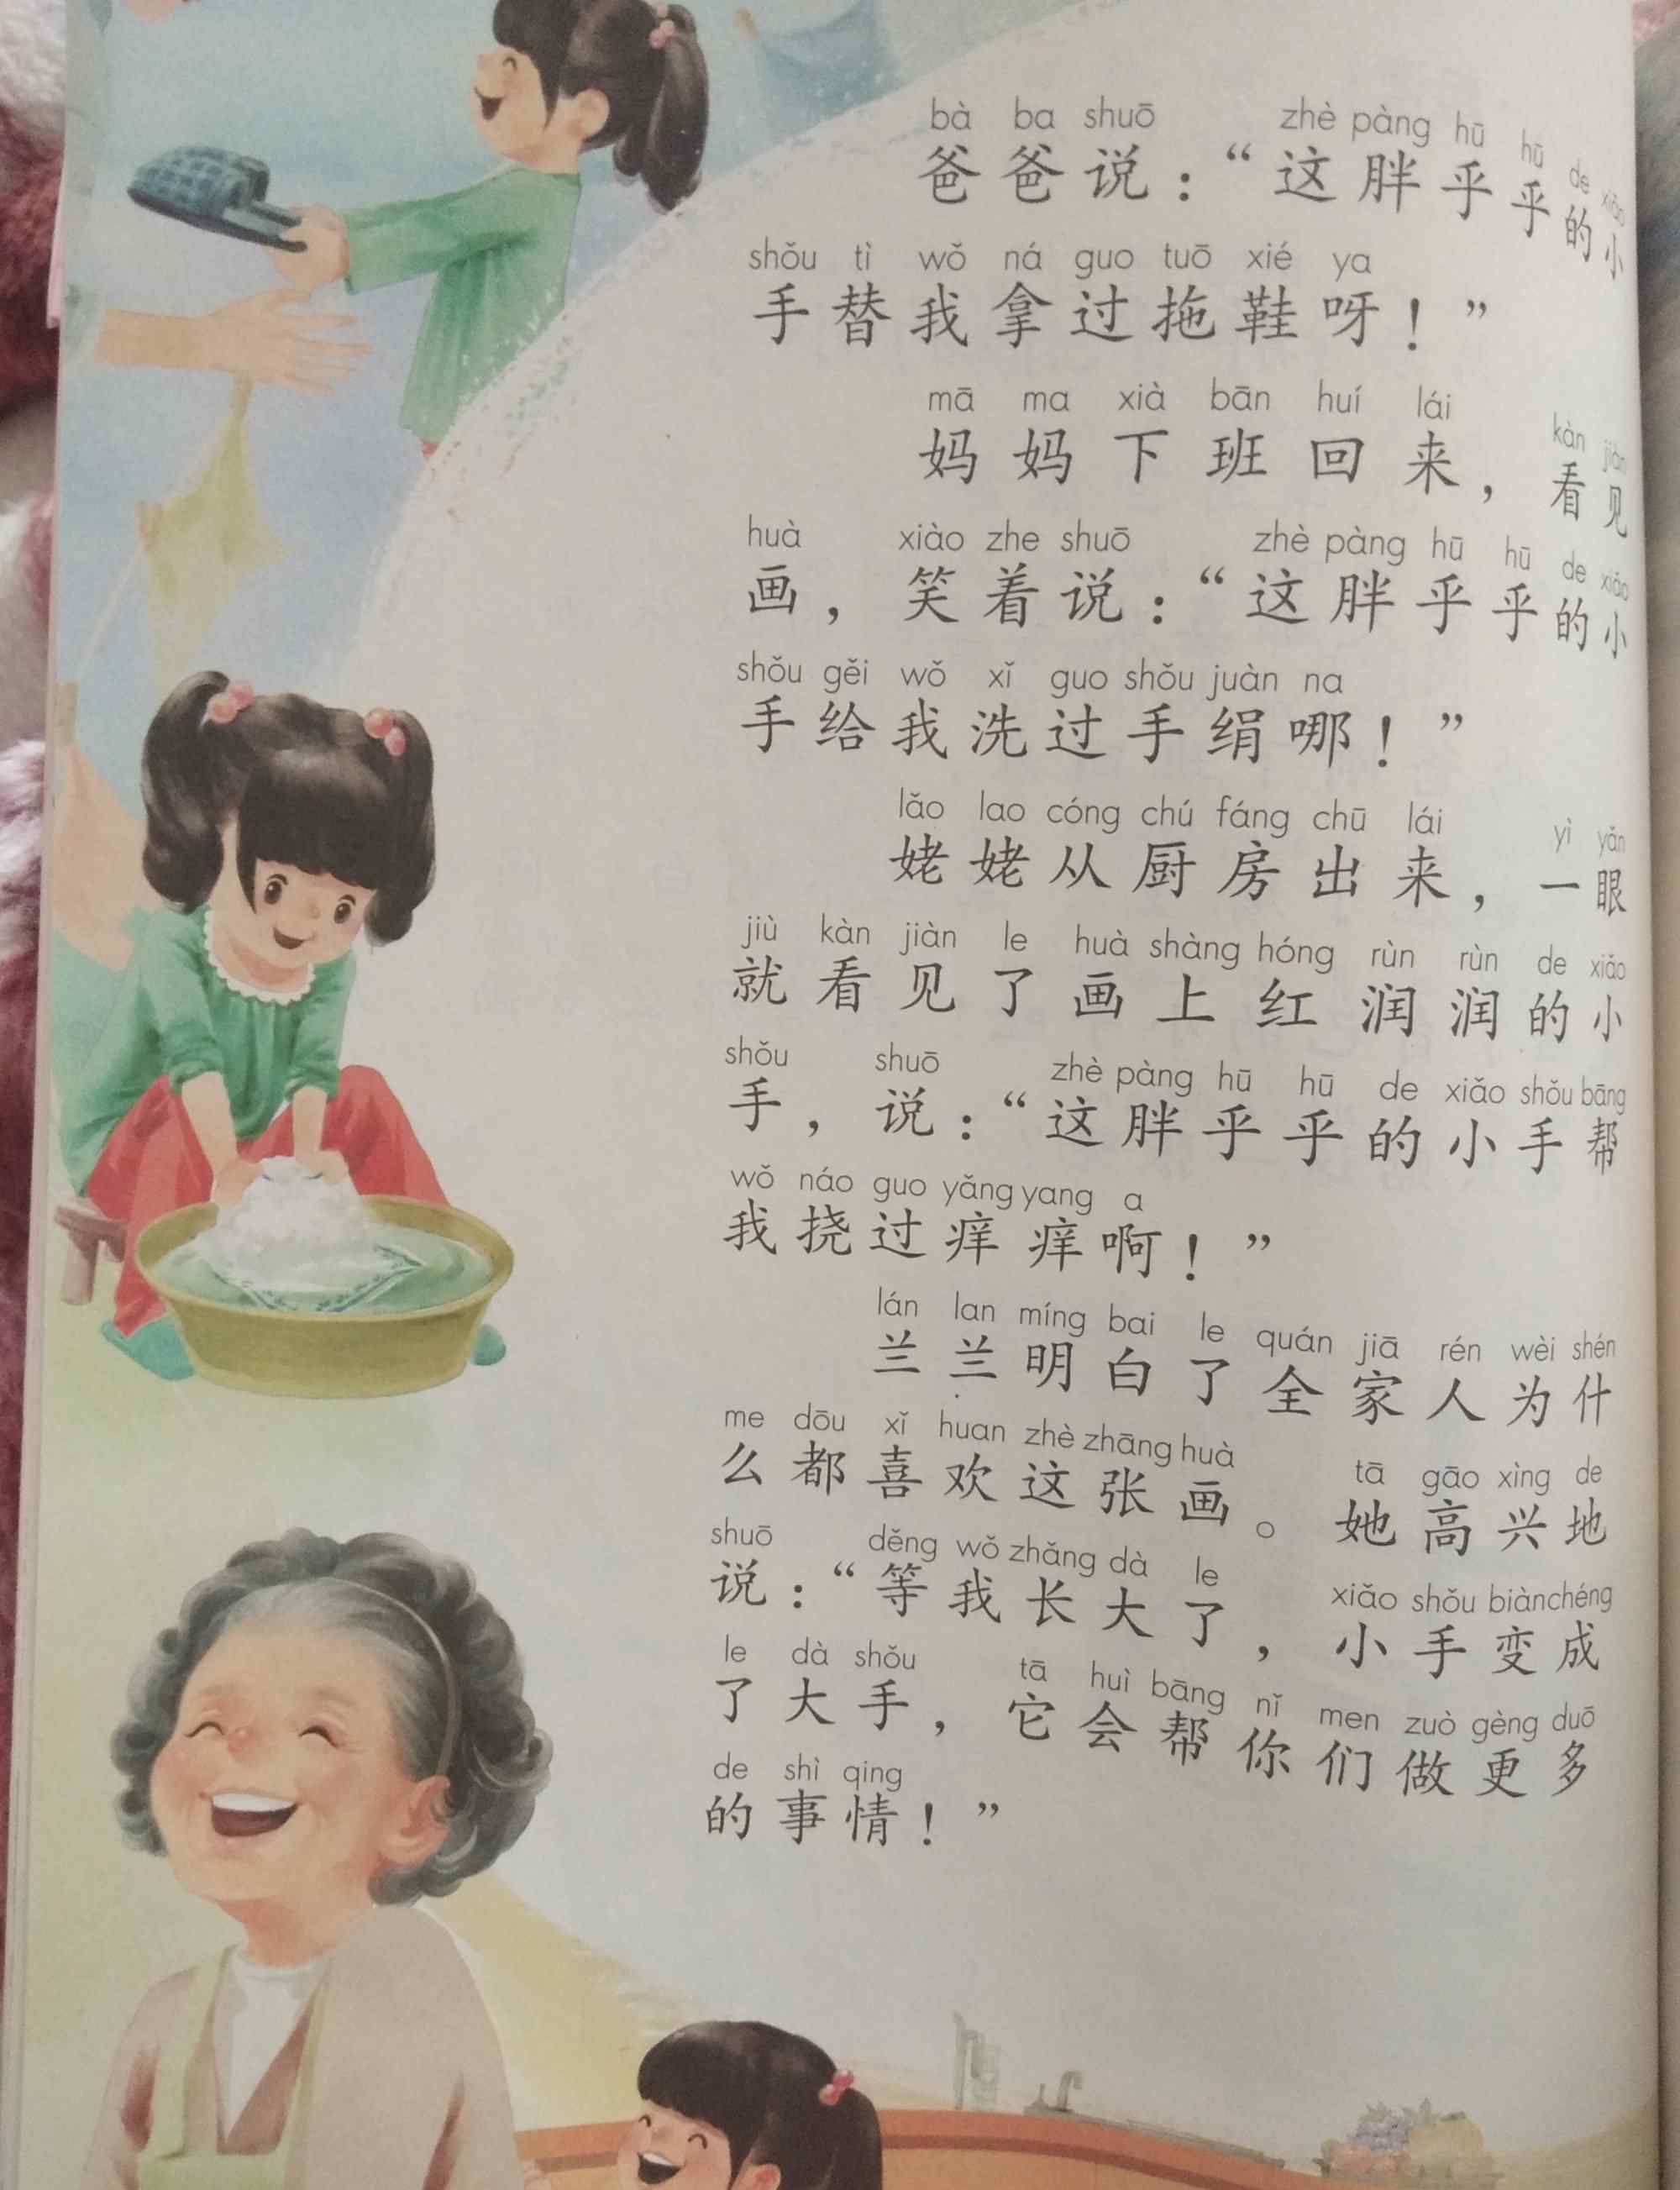 bà ba shuō zhè pàng hū hū de xiǎo
爸爸说：“这胖乎乎的小
shǒu tì wǒ ná guo tuō xié ya
手替我拿过拖鞋呀！”
mā ma xià bān huí lái kàn jiàn
妈妈下班回来，看见
huà xiào zhe shuō zhè pàng hū hū de xiǎo
画，笑着说：“这胖乎乎的小
shǒu gěi wǒ xǐ guo shǒu juàn na
手给我洗过手绢哪！”
lǎo lao cóng chú fáng chū lái yì yǎn
姥姥从厨房出来，一眼
jiù kàn jiàn le huà shàng hóng rùn rùn de xiǎo
就看见了画上红润润的小
shǒu shuō zhè pàng hū hū de xiǎo shǒu bāng
手，说：“这胖乎乎的小手帮
wǒ náo guo yǎng yang a
我挠过痒痒啊！”
lán lan míng bai le quán jiā rén wèi shén
兰兰明白了全家人为什
me dōu xǐ huan zhè zhāng huà tā gāo xìng de
么都喜欢这张画。她高兴地
shuō děng wǒ zhǎng dà le xiǎo shǒu biàn chéng
说：“等我长大了，小手变成
le dà shǒu tā huì bāng nǐ men zuò gèng duō
了大手，它会帮你们做更多
de shì qing
的事情！”